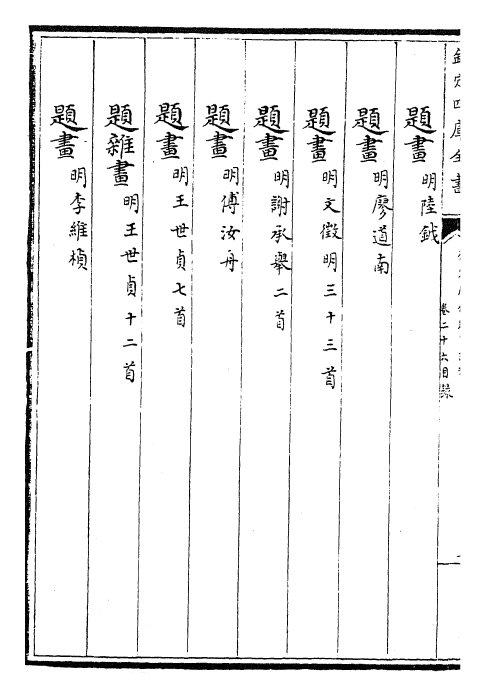 欽定四庫全書
卷二十六目錄
題畫 明陸鉞
題畫 明廖道南
題畫 明文徵明三十三首
題畫 明謝承舉二首
題畫 明傅汝舟
題畫 明王世貞七首
題雜畫 明王世貞十二首
題畫 明李維楨